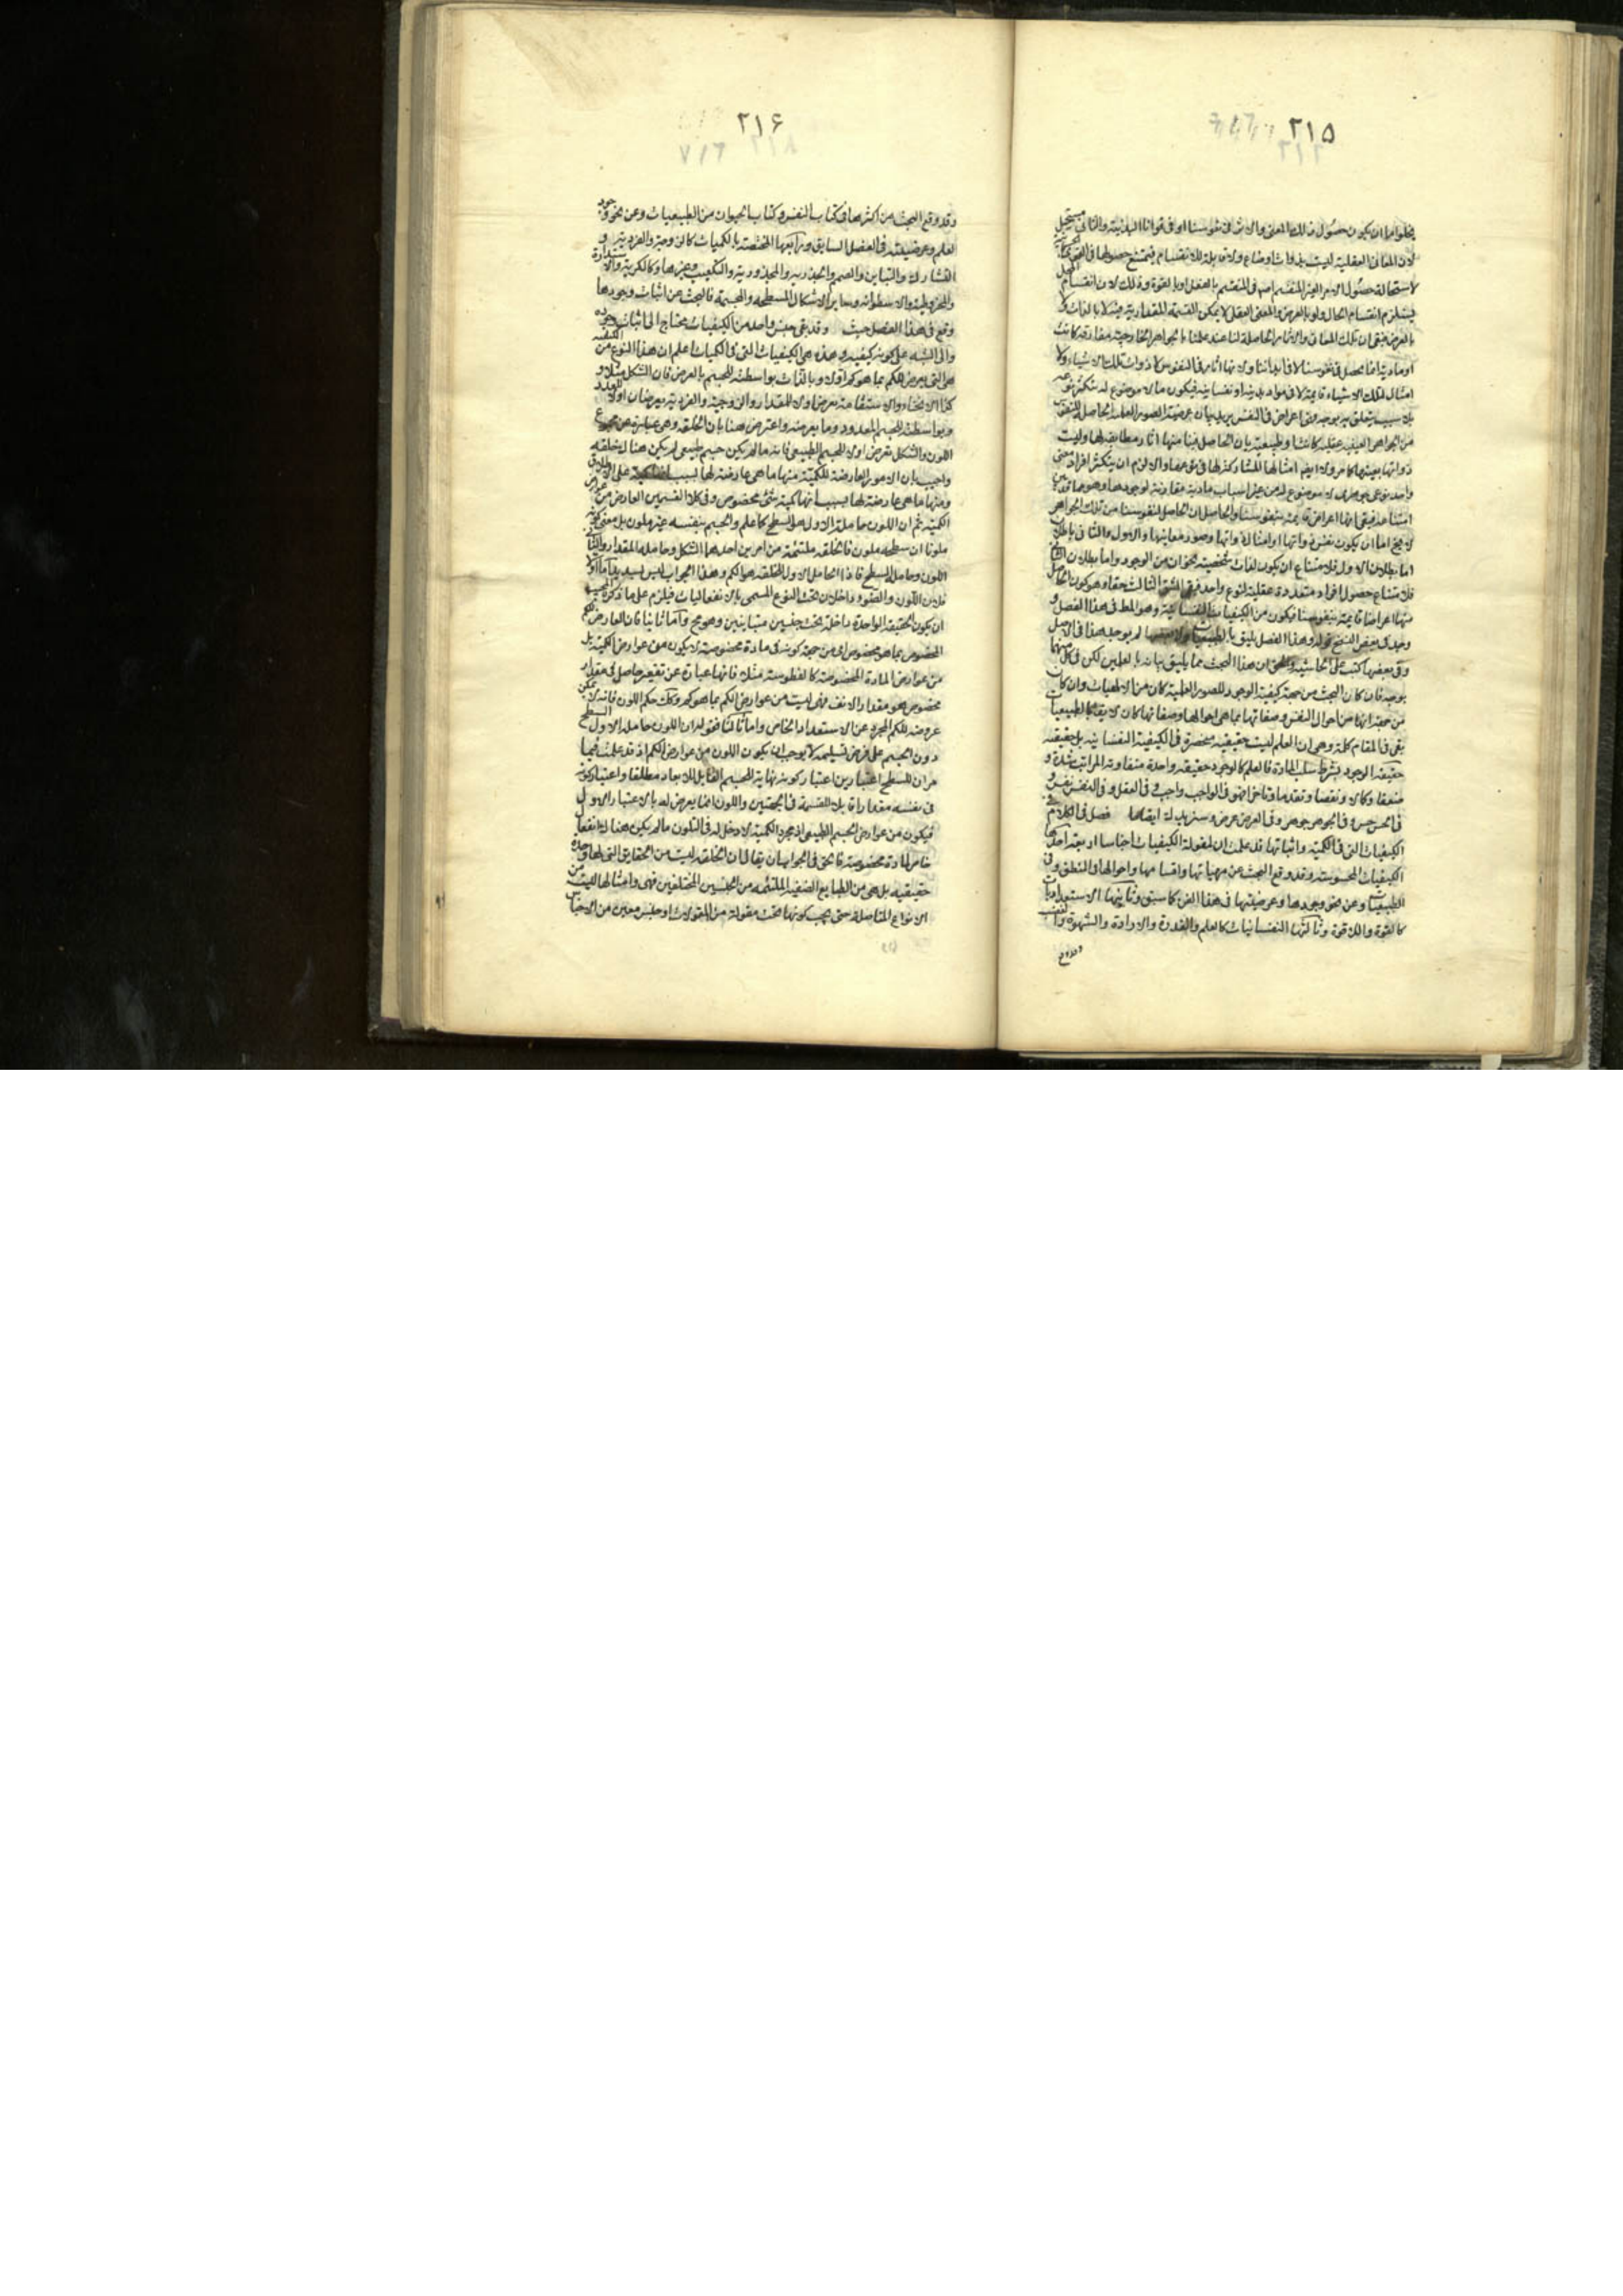 ٢١٥
يخلوا اما ان يكون حصول تلك المعانى والاثر فى نفوسنا او فى قوانا البدنية والثانى مستحيل
لان المعانى العقلية ليست بذوات اوضاع ولا قابلة للانقسام فيمتنع حصولها فى
لاستحالة حصول الامر الغير المنقسم فى المنقسم بالفعل او بالقوة وذلك لان انقسام المحل
يستلزم انقسام الحال ولو بالعرض والمعنى العقلى لا يمكن القسمة المقدارية فيه لا بالذات ولا
بالعرض فبقى ان تلك المعانى والاثار الحاصلة لنا عند علمنا بالجواهر الخارجية مفارقة كانت
او مادية انما تحصل فى نفوسنا لا فى ابداننا ولانها اثار فى النفوس لا ذوات تلك الاشياء ولا
امثال لتلك الاشياء قائمة لا فى مواد بدنية او نفسانية فيكون مالا موضوع له
بلا سبب يتعلق به بوجه فهى اعراض فى النفس
من الجواهر العينية عقلية كانت او طبيعية بان الحاصل فينا منها اثار مطابقة لها وليست
ذواتها بعينها كما مر ولا ايضا امثالها المشاركة لها فى نوعها والا لزم ان يتكثر افراد معنى
واحد نوعى جوهرى لا موضوع له من غير اسباب مادية مقارنة لوجودها وهو مما قد بين
امتناعه فبقى انها اعراض قائمة بنفوسنا والحاصل ان الحاصل لنفوسنا من تلك الجواهر
لا يخ اما ان يكون نفس ذواتها او امثالها وصور معانيها والاول والثانى باطلان
اما بطلان الاول فلامتناع ان يكون لذات شخصية نحوان من الوجود واما بطلان الثانى
فلامتناع حصول افراد متعددة عقلية لنوع واحد فبقى الشق الثالث حقا وهو كون الحاصل
منها اعراضا قائمة بنفوسنا فيكون من الكيفيات النفسانية وهو المط فى هذا الفصل و
وجد فى بعض النسخ قوله وهذا الفصل يليق بالطبيعيات لم يوجد هذا فى الاصل
وفى بعضها كتب على الحاشية والحق ان هذا البحث مما يليق بيانه بالعلمين لكن فى كل منهما
بوجه فان كان البحث من جهة كيفية الوجود للصور العلمية كان من الالهيات وان كان
من جهة انها من احوال النفس وصفاتها بما هى احوالها وصفاتها كان لايقا بالطبيعيات
بقى فى المقام كلام وهو ان العلم ليست حقيقته منحصرة فى الكيفية النفسانية بل حقيقته
حقيقة الوجود بشرط سلب المادة فالعلم كالوجود حقيقة واحدة متفاوتة المراتب شدة و
ضعفا وكمالا ونقصا وتقدما وتاخرا فهو فى الواجب واجب وفى العقل عقل وفى النفس نفس و
فى الحس حس وفى الجوهر جوهر وفى العرض عرض وسنزيدك ايضاحا فصل فى الكلام فى
الكيفيات التى فى الكمية واثباتها قد علمت ان لمقولة الكيفيات اجناسا اربعة احدها
الكيفيات المحسوسة وقد وقع البحث عن مهياتها واقسامها واحوالها فى المنطق وفى
الطبيعيات وعن نحو وجودها وعرضيتها فى هذا الفن كما سبق وثانيها الاستعداديات
كالقوة واللاقوة وثالثها النفسانيات كالعلم والقدرة والارادة والشهوة والغضب
٢١۶
وقد وقع البحث عن اكثرها فى كتاب النفس وكتاب الحيوان من الطبيعيات وعن نحو وجود
العلم وعرضيته فى الفصل السابق ورابعها المختصة بالكميات كالزوجية والفردية و
التشارك والتباين والصمم والجذرية والمجذورية والتكعيب وغيرها وكالكرية والاستدارة
والمخروطية والاسطوانة وساير الاشكال المسطحة والمجسمة فالبحث عن اثبات وجودها
وقع فى هذا الفصل حيث وقد بقى جنس واحد من الكيفيات يحتاج الى اثبات وجوده
والى التنبه على كونه كيفية وهذه هى الكيفيات التى فى الكميات اعلم ان هذا النوع من الكيفية
هى التى يعرض للكم بما هو كم اولا وبالذات بواسطته للجسم بالعرض فان الشكل مثلا و
كذا الانحناء والاستقامة تعرض اولا للمقدار والزوجية والفردية يعرضان اولا للعدد
وبواسطته للجسم المعدود وما يعرضه واعترض هنا بان الخلقة وهى عبارة عن مجموع
اللون والشكل تعرض اولا للجسم الطبيعى فانه ما لم يكن جسم طبيعى لم يكن هناك خلقة
واجيب بان الامور العارضة للكمية منها ما هى عارضة لها بسبب على الاطلاق
ومنها ما هى عارضة لها بسبب انها كمية شئ مخصوص وفى كلا القسمين العارض من عوارض
الكمية ثم ان اللون حامله الاول هو السطح كما علم والجسم بنفسه غير ملون بل معنى كونه
ملونا ان سطحه ملون فالخلقة ملتئمة من امرين احدهما الشكل وحامله المقدار والثانى
اللون وحامله السطح فاذا الحامل الاول للخلقة هو الكم وهذا الجواب ليس بسديد اما اولا
فلان اللون والضوء داخلان تحت النوع المسمى بالانفعاليات فيلزم على ما ذكره المجيب
ان يكون الحقيقة الواحدة داخلة تحت جنسين متباينين وهو مح واما ثانيا فان العارض للكم
المخصوص بما هو مخصوص اى من جهة كونه فى مادة مخصوصة لا يكون من عوارض الكمية بل
من عوارض المادة المخصوصة كالفطوسة مثلا فانها عبارة عن تقعير حاصل فى مقدار
مخصوص هو مقدار الانف فهى ليست من عوارض الكم بما هو كم وكك حكم اللون فانه لا يمكن
عروضه للكم المجرد عن الاستعداد الخاص واما ثالثا فقوله ان اللون حامله الاول السطح
دون الجسم على فرض تسليمه لا يوجب ان يكون اللون من عوارض الكم اذ قد علمت فيما
مر ان للسطح اعتبارين اعتبار كونه نهاية للجسم القابل للابعاد مطلقا واعتبار كونه
فى نفسه مقدارا قابلا للقسمة فى الجهتين واللون انما يعرض له بالاعتبار الاول
فيكون من عوارض الجسم الطبيعى اذ مجرد الكمية لا دخل له فى التلون ما لم يكن هناك انفعال
خاص لمادة مخصوصة فالحق فى الجواب ان يقال ان الخلقة ليست من الحقايق التى لها وحدة
حقيقية بل هى من الطبايع الضعيفة الملتئمة من الجنسين المختلفين فهى وامثالها ليست من
الانواع المتاصلة حتى يجب كونها تحت مقولة من المقولات او جنس معين من الاجناس